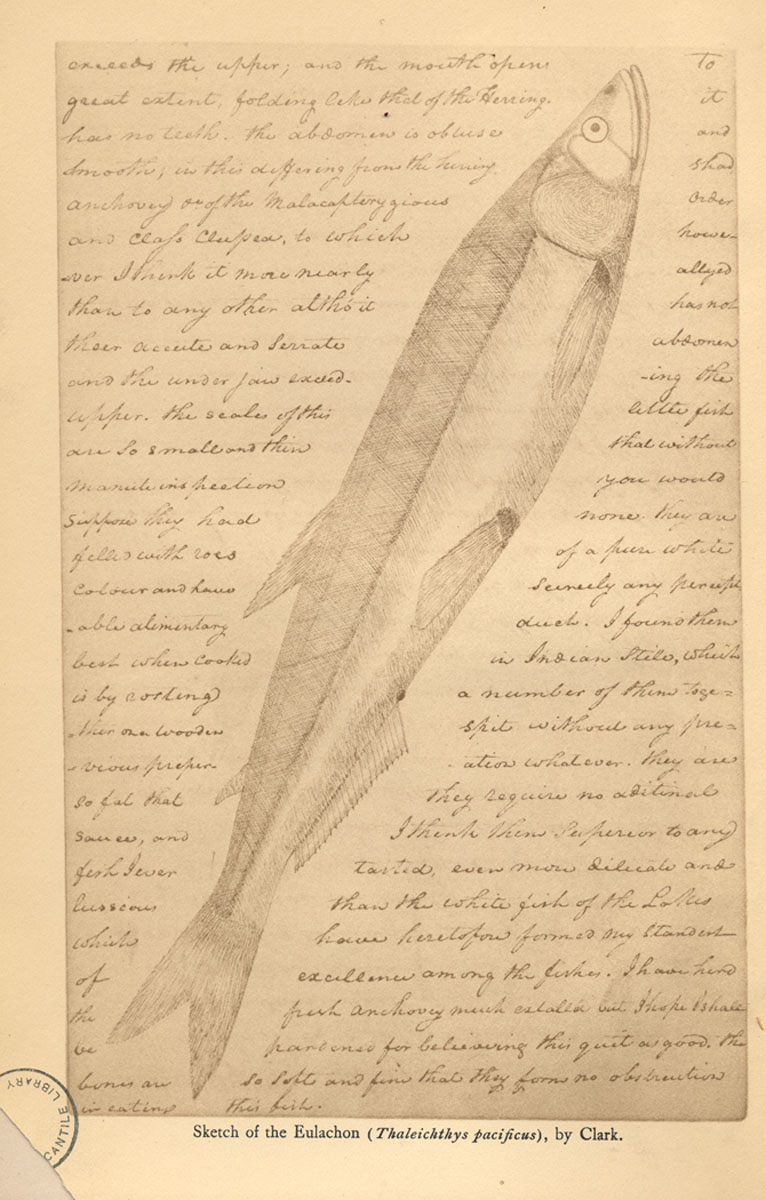 exceeds the upper; and the mouth opens To
great extent, folding like that of the Herring. it
has no teeth. the abdomen is obtuse and
smooth; in this differing from the herring, shad
anchovey &c of the Malacapterygious Order
and Class Clupea, to which howe-
-ver I think it more nearly allyed
than to any other altho' it has not
their accute and serrate abdomen
and the under jaw exceed- -ing the
upper. the scales of this little fish
are so small and thin that without
manute inspection you would
suppose they had none. they are
filled with roes of a pure white
colour and have scercely any percept
-able alimentary duct. I found them
best when cooked in Indian stile, which
is by rosting a number of them toge=
-ther on a wooden spit without any pre=
-vious preper- -ation whatever. they are
so fat that they require no aditinal
sauce, and I think them superior to any
fish I ever tasted, even more dilicate and
lusscious than the white fish of the Lakes
which have heretofore formed my standert
of excellence among the fishes. I have herd
the fresh anchovey much extolled but I hope I shall
be pardened for believing this quit as good. the
bones are so soft and fine that they form no obstruction
in eating this fish.
Sketch of the Eulachon (Thaleichthys pacificus), by Clark.
CANTILE LIBRARY